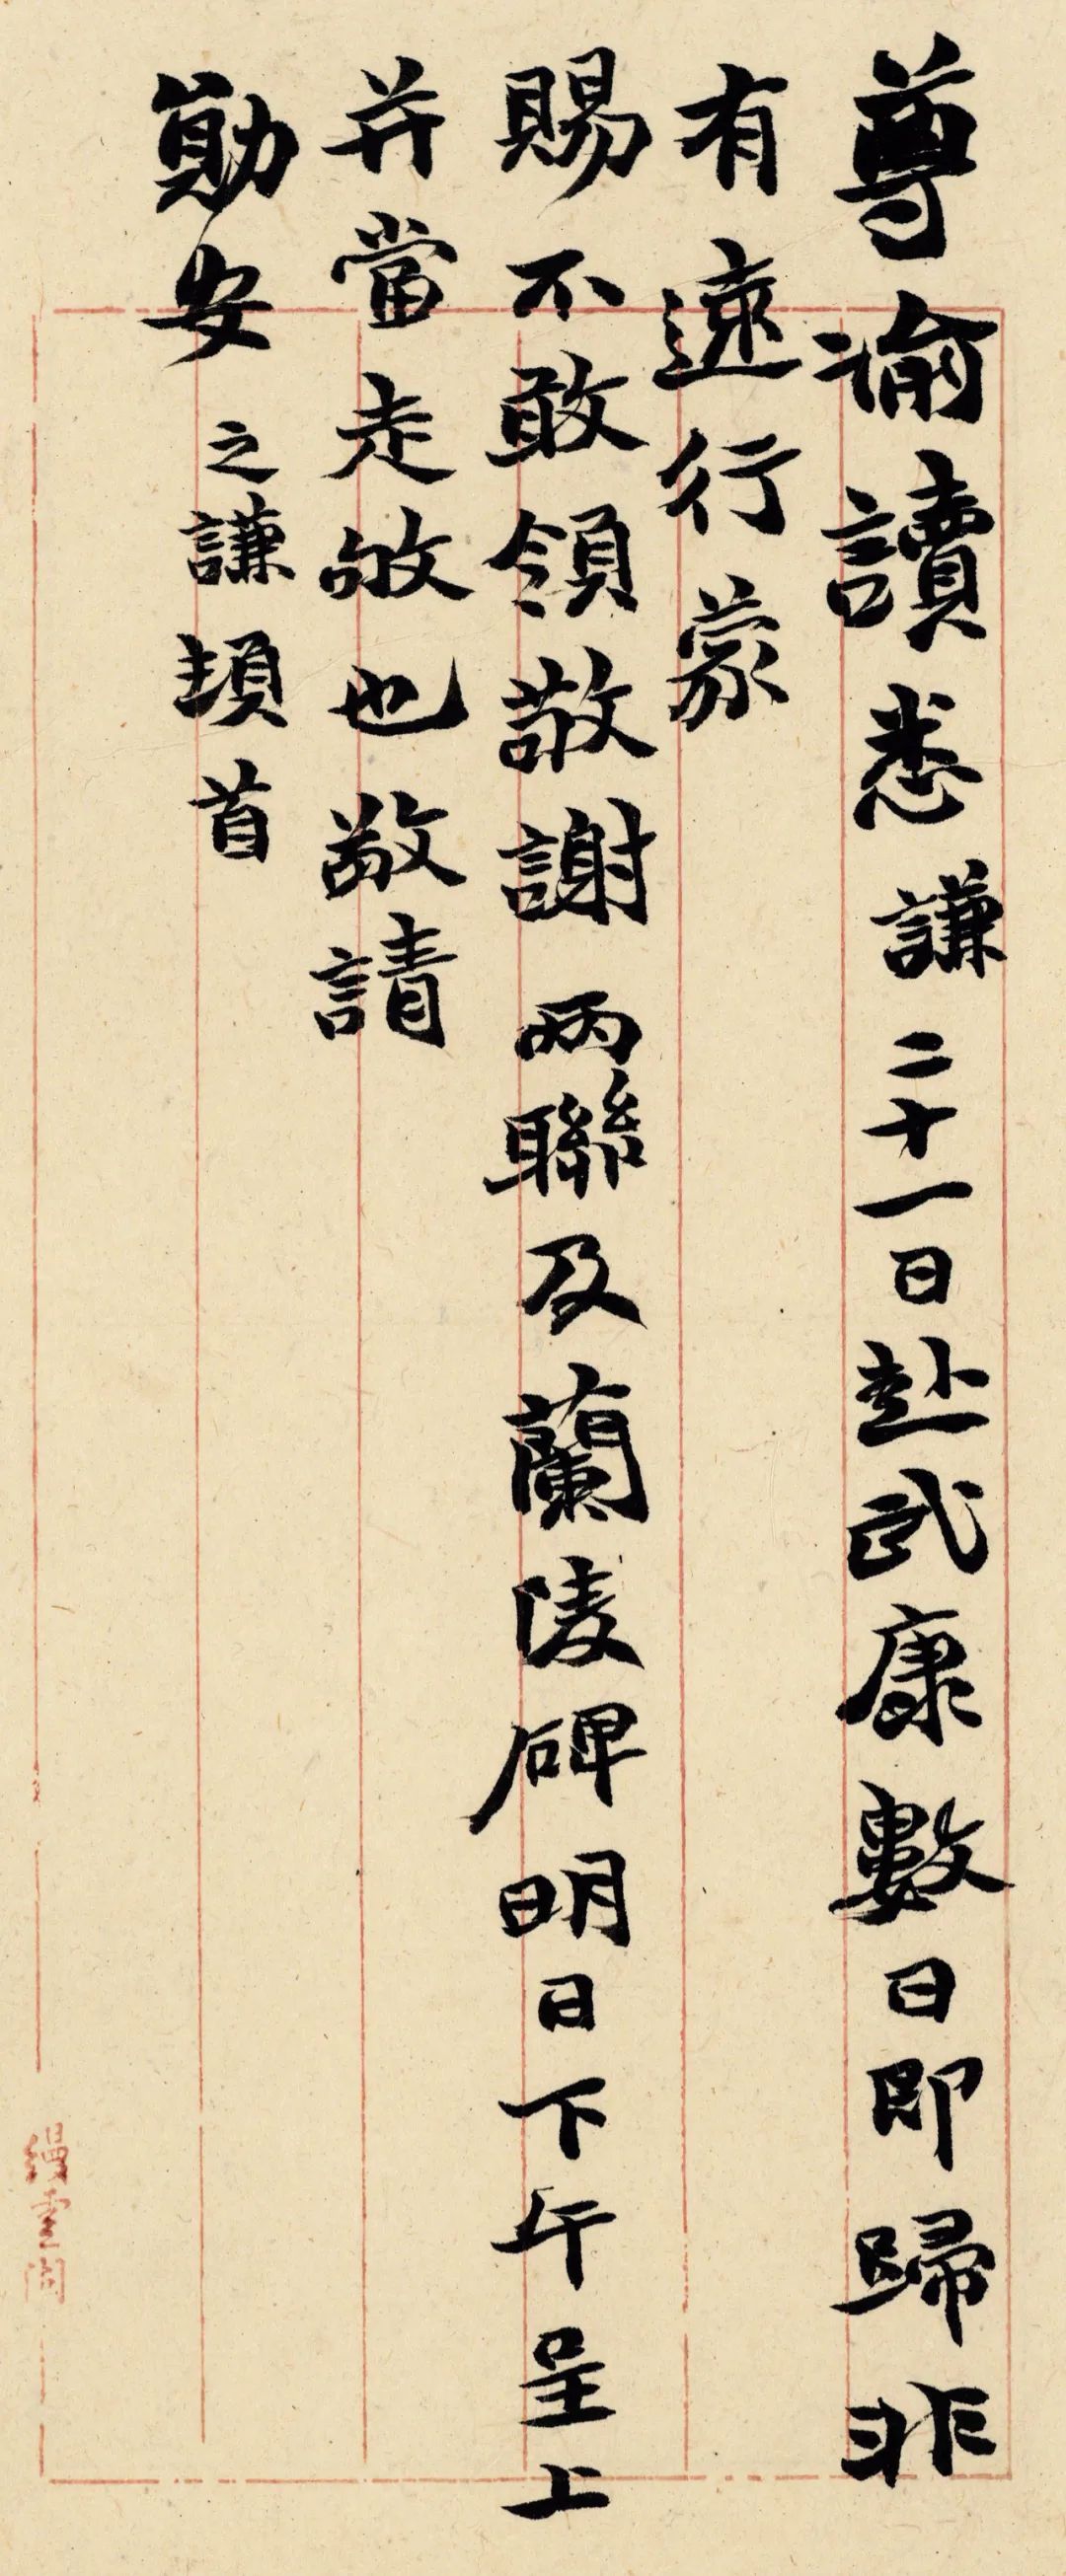 尊諭讀悉謙二十一日赴武康數日即歸非
有遠行蒙
賜不敢領敬謝兩聯及蘭陵碑明日下午呈上
并當走敂也敬請
勛安之謙頓首
縵雲閣